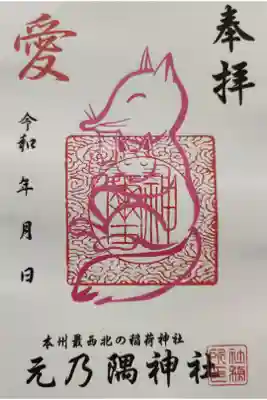 奉拝
愛
令和 年 月 日
本州最西北の稲荷神社
元乃隅神社